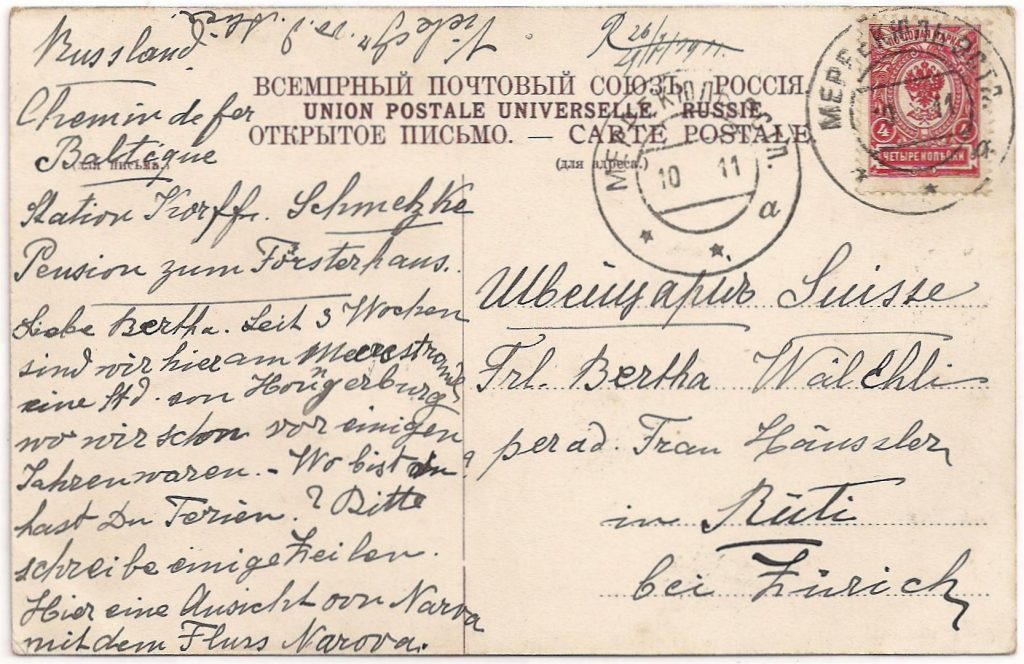 Russland
R 26/7 1911.
ВСЕМІРНЫЙ ПОЧТОВЫЙ СОЮЗЪ. РОССІЯ.
UNION POSTALE UNIVERSELLE. RUSSIE.
ОТКРЫТОЕ ПИСЬМО. — CARTE POSTALE.
(для письма.)
(для адреса.)
Chemin de fer
Baltique
Station Korff. Schmetzke
Pension zum Försterhaus.
Liebe Bertha. Seit 3 Wochen
sind wir hier am Meeresstrande
eine Std. von Hoüngerburg
wo wir schon vor einigen
Jahren waren. - Wo bist du?
hast Du Ferien? Bitte
schreibe einige Zeilen.
Hier eine Ansicht von Narva
mit dem Fluss Narova.
10 11
а
МЕРРЕКЮЛЬ ЭСТЛ.
11
а
4 4
ЧЕТЫРЕ КОПѢЙКИ
Швейцарія Suisse
Frl. Bertha Wälchli
per ad. Frau Häussler
in Rüti
bei Zürich